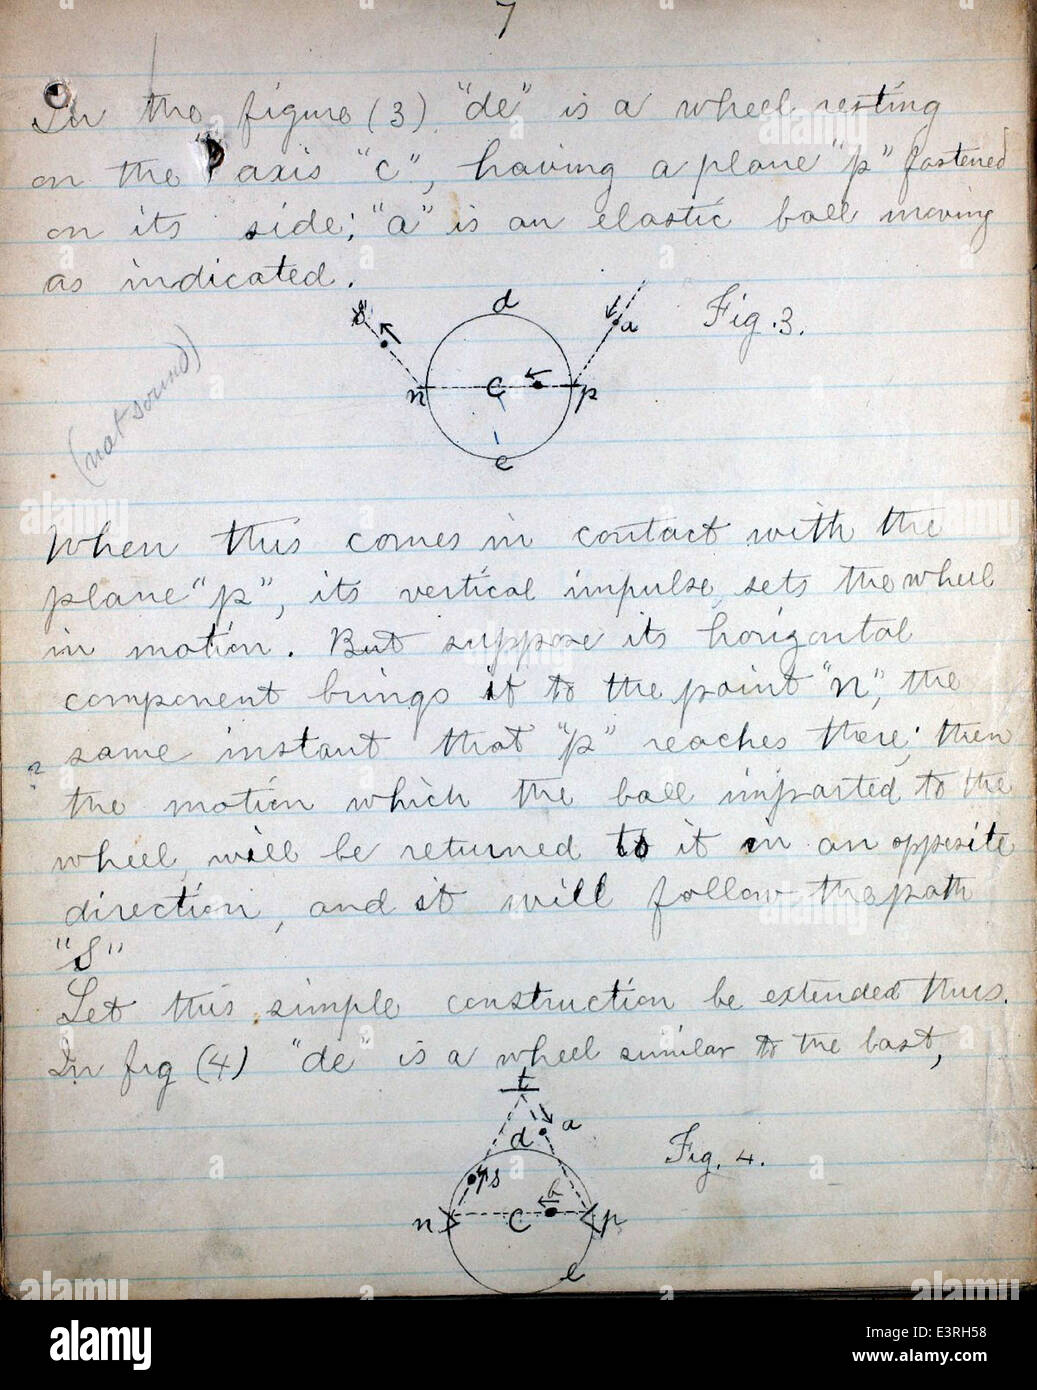 7
In the figure (3) "de" is a wheel resting
on the axis "c", having a plane "p" fastened
on its side; "a" is an elastic ball moving
as indicated.
S d a Fig. 3.
n C p
e
(not sound)
When this comes in contact with the
plane "p", its vertical impulse, sets the wheel
in motion. But suppose its horizontal
component brings it to the point "n", the
same instant that "p" reaches there; then
?
the motion which the ball imparted to the
wheel, will be returned to it in an opposite
direction, and it will follow the path
"S"
Let this simple construction be extended thus.
In fig (4) "de" is a wheel similar to the last,
t
d a
Fig. 4.
s
n C p
e
alamy
Image ID: E3RH58
www.alamy.com